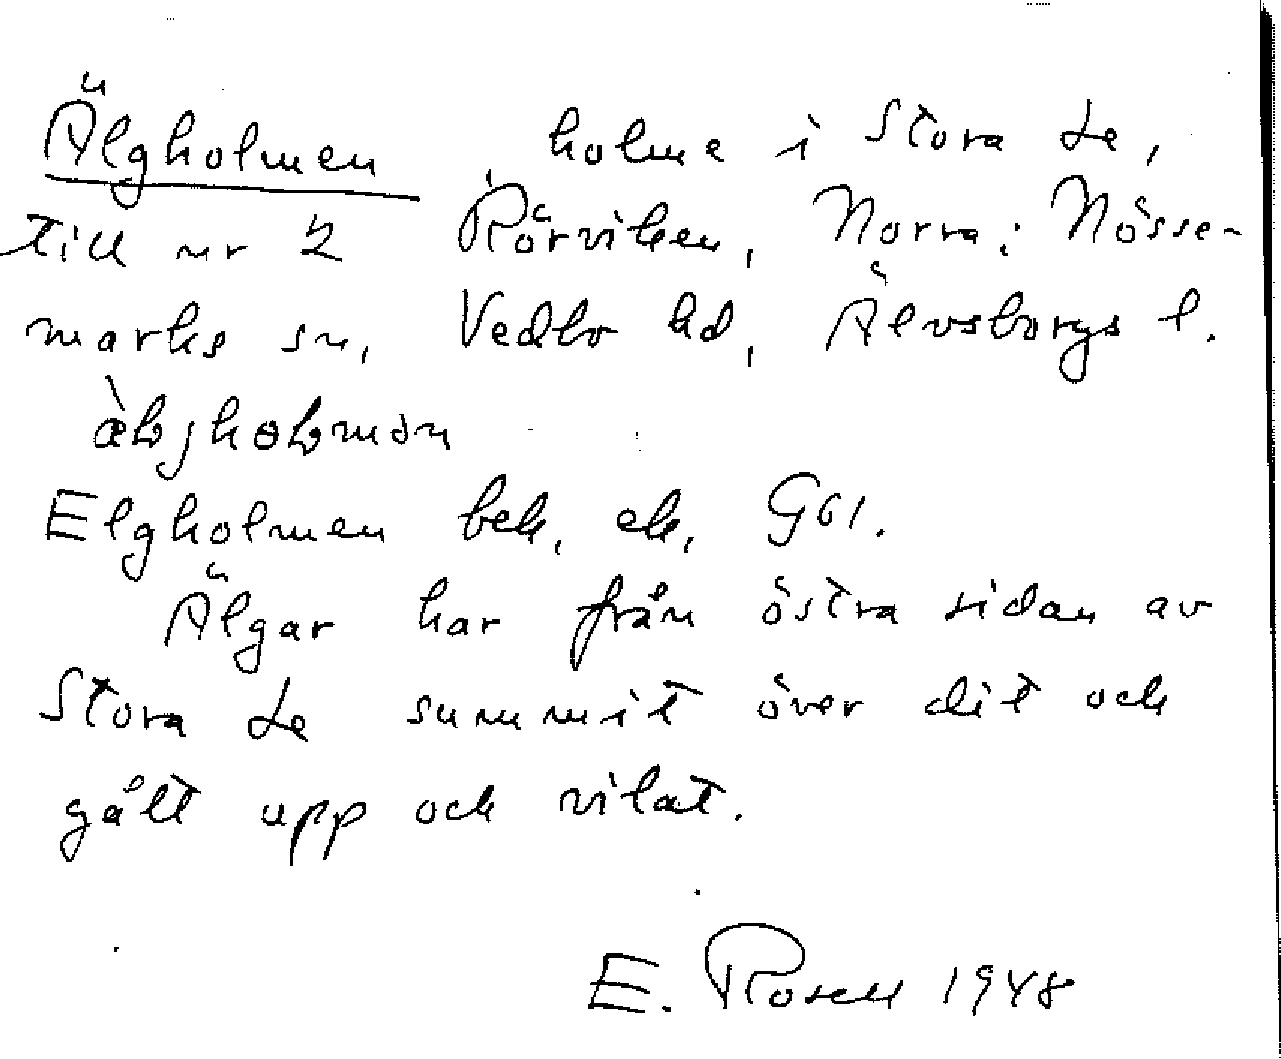 Älgholmen, holme i Stora Le,
till nr 2 Rörviken, Norra; Nösse-
marks sn, Vedbo hd, Älvsborgs l.
Elgholmen bek, ek, G61.
Älgar har från östra sidan av
Stora Le summit över dit och
gått upp och vilat.
E. Rosell 1948